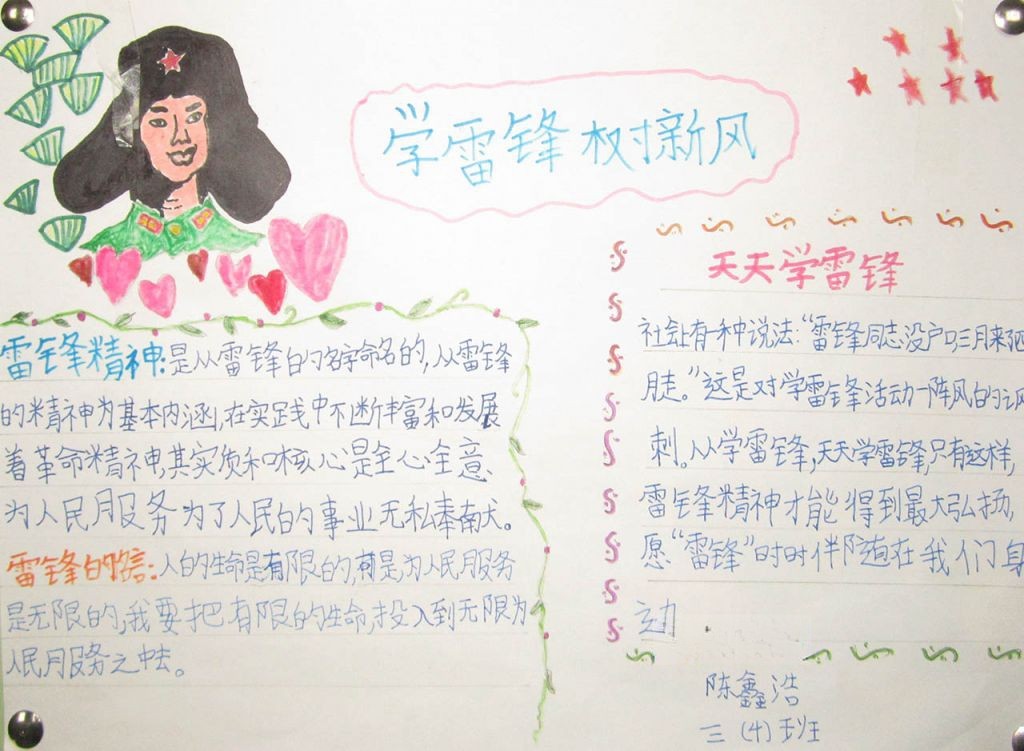 学雷锋树新风
雷锋精神:是从雷锋的名字命名的,从雷锋
的精神为基本内涵,在实践中不断丰富和发展
着革命精神,其实质和核心是全心全意
为人民月服务为了人民的事业无私奉献。
雷锋的信:人的生命是有限的,可是,为人民服务
是无限的,我要把有限的生命,投入到无限为
人民月服务之中去。
天天学雷锋
社会上有一种说法:“雷锋同志没户口,三月来四
月走。”这是对学雷锋活动一阵风的讽
刺。从学雷锋,天天学雷锋,只有这样,
雷锋精神才能得到最大弘扬,
愿“雷锋”时时伴随在我们身
边
陈鑫浩
三(4)班